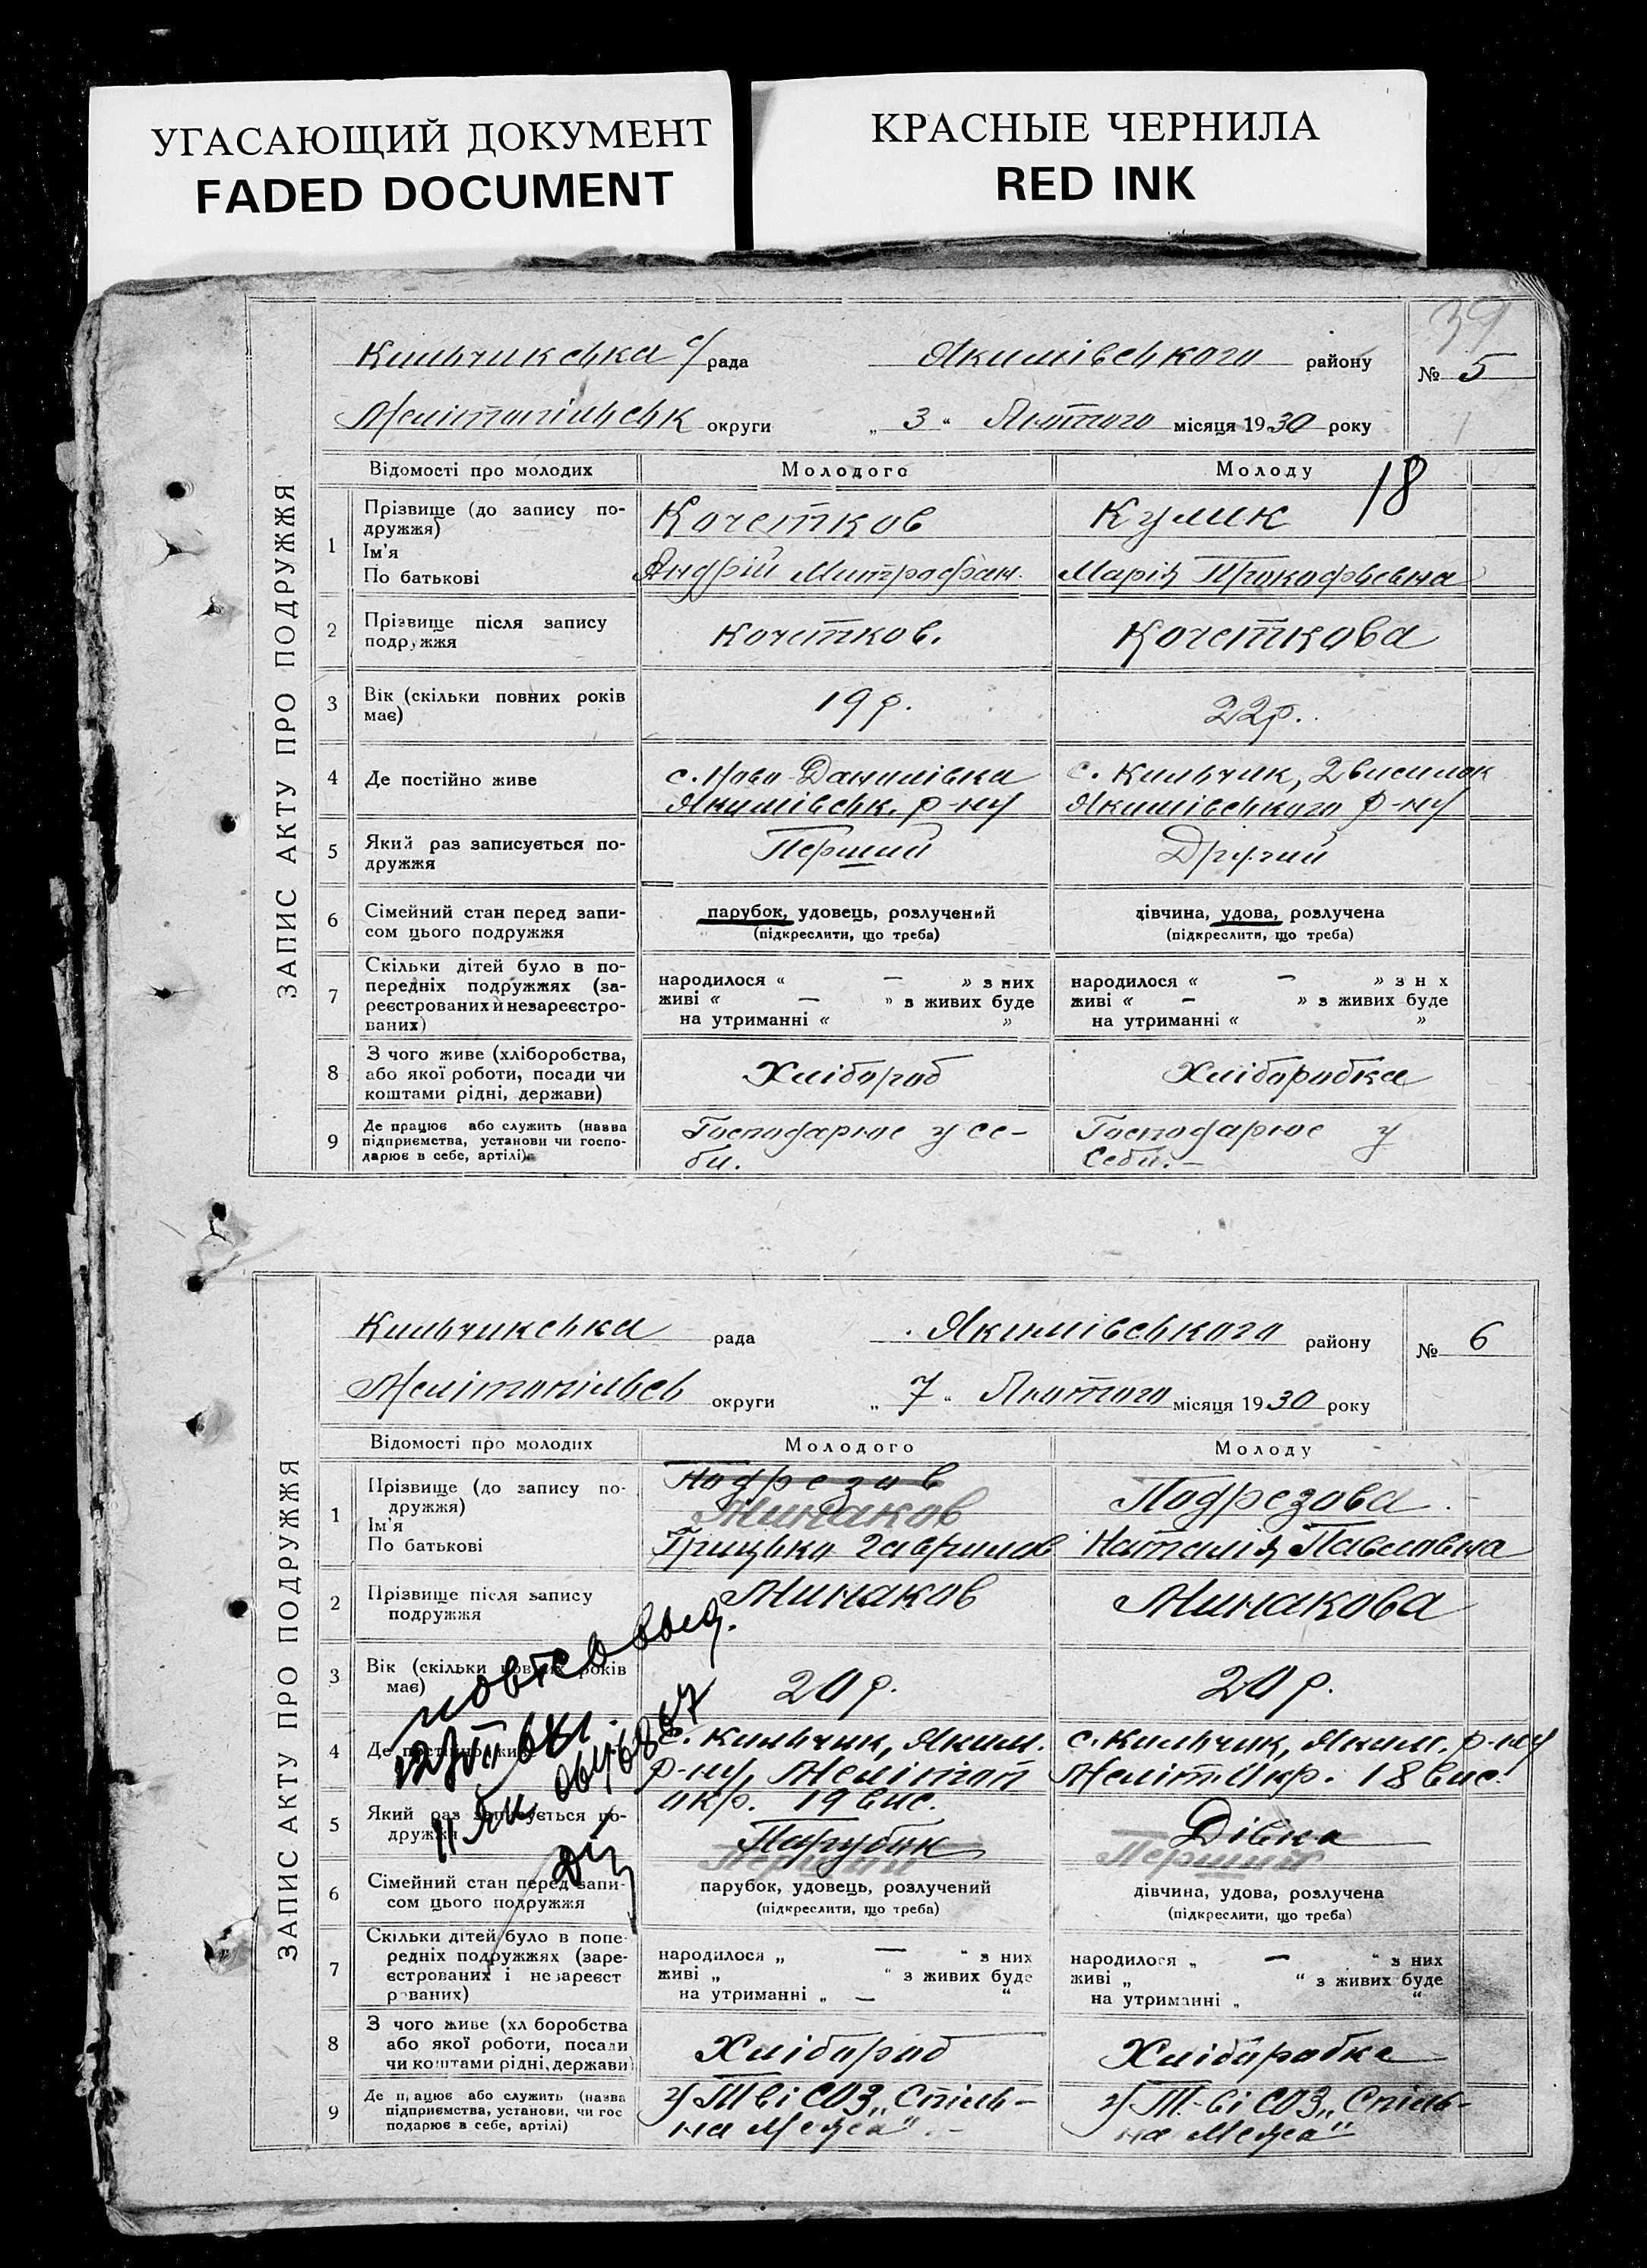 УГАСАЮЩИЙ ДОКУМЕНТ
FADED DOCUMENT
КРАСНЫЕ ЧЕРНИЛА
RED INK
39
ЗАПИС АКТУ ПРО ПОДРУЖЖЯ
Кильчикська с/рада Якимівського району № 5
Мелітопільськ округи „ 3 “ Лютого місяця 1930 року
Відомості про молодих Молодого Молоду 18
1 Прізвище (до запису по-
дружжя)
Ім'я
По батькові
Кочетков
Андрій Митрофан.
Кулик
Марія Прокофьевна
2 Прізвище після запису
подружжя
Кочетков.
Кочеткова
3 Вік (скільки повних років
має)
19 р.
22р.
4 Де постійно живе
с. Ново-Данилівка
Якимівськ. р-ну
с. Кильчик, 2 виселок
Якимівського р-ну
5 Який раз записується по-
дружжя
Перший
Другий
6 Сімейний стан перед запи-
сом цього подружжя
парубок, удовець, розлучений
(підкреслити, що треба)
дівчина, удова, розлучена
(підкреслити, що треба)
7 Скільки дітей було в по-
передніх подружжях (за-
реєстрованих й незареєстро-
ваних)
народилося « — » з них
живі « — » з живих буде
на утриманні « »
народилося « — » з н х
живі « — » з живих буде
на утриманні « »
8 З чого живе (хліборобства,
або якої роботи, посади чи
коштами рідні, держави)
Хлібороб
Хліборобка
9 Де працює або служить (назва
підприємства, установи чи госпо-
дарює в себе, артілі)
Господарює у се-
би.
Господарює у
Себи. —
ЗАПИС АКТУ ПРО ПОДРУЖЖЯ
Кильчикська рада Якімівського району № 6
Мелітопільсь округи „ 7 “ Лютого місяця 1930 року
Відомості про молодих Молодого Молоду
1 Прізвище (до запису по-
дружжя)
Ім'я
По батькові
Подрезов
Минаков
Грицько Гаврилов
Подрезова
Наталія Павловна
2 Прізвище після запису
подружжя
Минаков
Минакова
3 Вік (скільки повних років
має)
20 р.
20 р.
4 Де постійно живе
с. Кильчик, Яким.
р-ну, Мелітоп
окр. 19 вис.
с. Кильчик, Яким. р-ну
Меліт. Окр. 18 вис.
5 Який раз записується по-
дружжя
Парубок
Перший
Дівка
Перший
6 Сімейний стан перед запи-
сом цього подружжя
парубок, удовець, розлучений
(підкреслити, що треба)
дівчина, удова, розлучена
(підкреслити, що треба)
7 Скільки дітей було в попе-
редніх подружжях (заре-
єстрованих і незареєст
рованих)
народилося „ — “ з них
живі „ “ з живих буде
на утриманні „ — “
народилося „ — “ з них
живі „ “ з живих буде
на утриманні „ “
8 З чого живе (хл боробства
або якої роботи, посади
чи коштами рідні, держави)
Хлібороб
Хліборобка
9 Де працює або служить (назва
підприємства, установи, чи гос
подарює в себе, артілі)
У Т-ві СОЗ „Спіль-
на Межа“. —
У Т-ві СОЗ „Спіль-
на Межа“